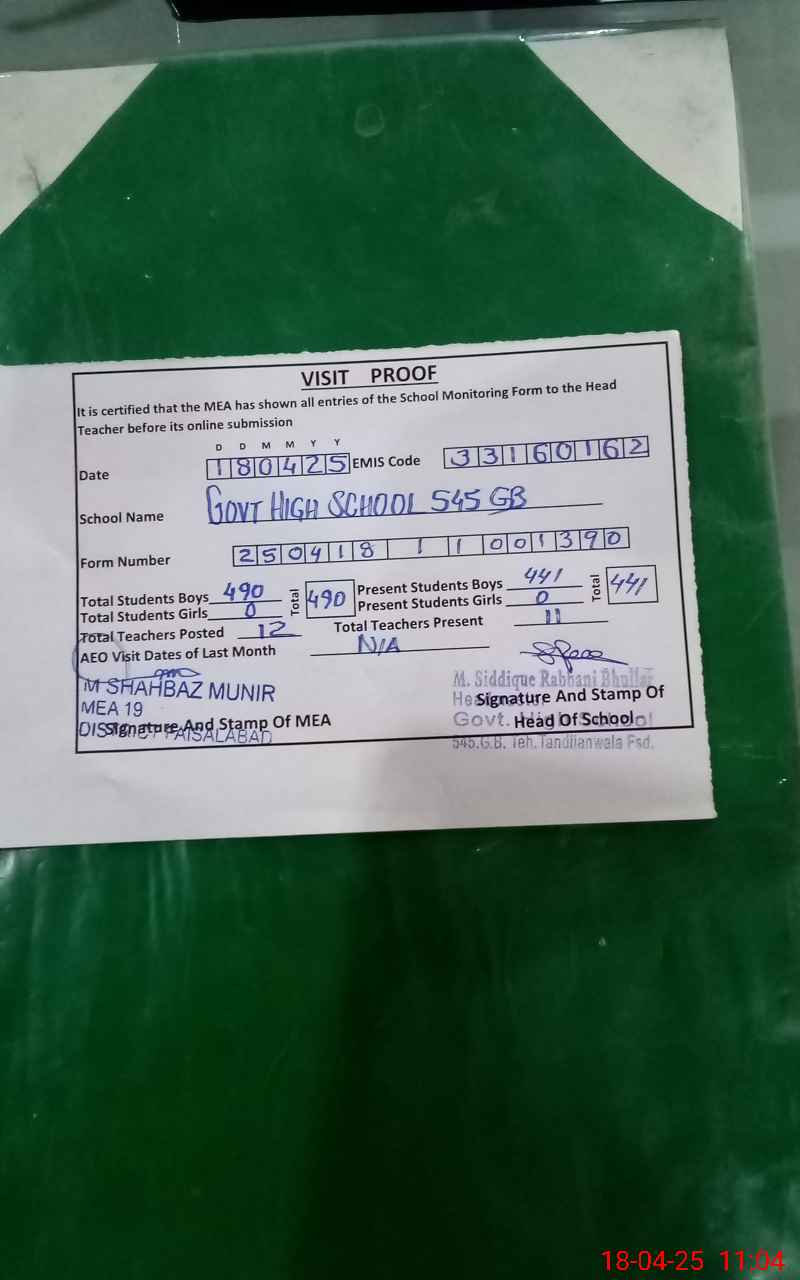 VISIT PROOF
It is certified that the MEA has shown all entries of the School Monitoring Form to the Head
Teacher before its online submission
D D M M Y Y
Date 180425 EMIS Code 33160162
School Name GOVT HIGH SCHOOL 545 GB
Form Number 250418 1 1 001390
Total Students Boys 490 Total 490 Present Students Boys 441 Total 441
Total Students Girls 0 Present Students Girls 0
Total Teachers Posted 12 Total Teachers Present 11
AEO Visit Dates of Last Month N/A
M SHAHBAZ MUNIR
MEA 19
DISTRICT FAISALABAD
Signature And Stamp Of MEA
M. Siddique Rabbani Bhullar
Headmaster
Govt. High School
545.G.B. Teh. Tandlianwala Fsd.
Signature And Stamp Of
Head Of School
18-04-25 11:04